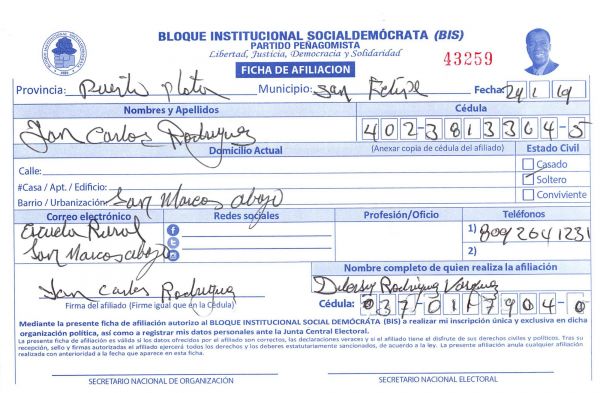 BLOQUE INSTITUCIONAL SOCIALDEMÓCRATA (BIS)
PARTIDO PEÑAGOMISTA
Libertad, Justicia, Democracia y Solidaridad
43259
FICHA DE AFILIACION
Provincia: Puerto Plata Municipio: San Felipe Fecha: 24/1/19
Nombres y Apellidos Cédula
Jan Carlos Rodriguez 402-3813364-5
Domicilio Actual (Anexar copia de cédula del afiliado) Estado Civil
Calle: Casado
#Casa / Apt. / Edificio: Soltero
Barrio / Urbanización: San Marcos abajo Conviviente
Correo electrónico Redes sociales Profesión/Oficio Teléfonos
Escuela Rural 1) 8092641231
San Marcos abajo 2)
Nombre completo de quien realiza la afiliación
Jan Carlos Rodriguez Rodriguez Vasquez
Firma del afiliado (Firme igual que en la Cédula) Cédula: 037-0117904-0
Mediante la presente ficha de afiliación autorizo al BLOQUE INSTITUCIONAL SOCIAL DEMÓCRATA (BIS) a realizar mi inscripción única y exclusiva en dicha
organización política, así como a registrar mis datos personales ante la Junta Central Electoral.
La presente ficha de afiliación es válida si los datos ofrecidos por el afiliado son correctos, las declaraciones veraces y si el afiliado tiene el disfrute de sus derechos civiles y políticos. Tras su
recepción, sello y firmas autorizadas el afiliado ejercerá todos los derechos y los deberes estatutariamente sancionados, de acuerdo a la ley. La presente afiliación anula cualquier afiliación
realizada con anterioridad a la fecha que aparece en esta ficha.
SECRETARIO NACIONAL DE ORGANIZACIÓN SECRETARIO NACIONAL ELECTORAL